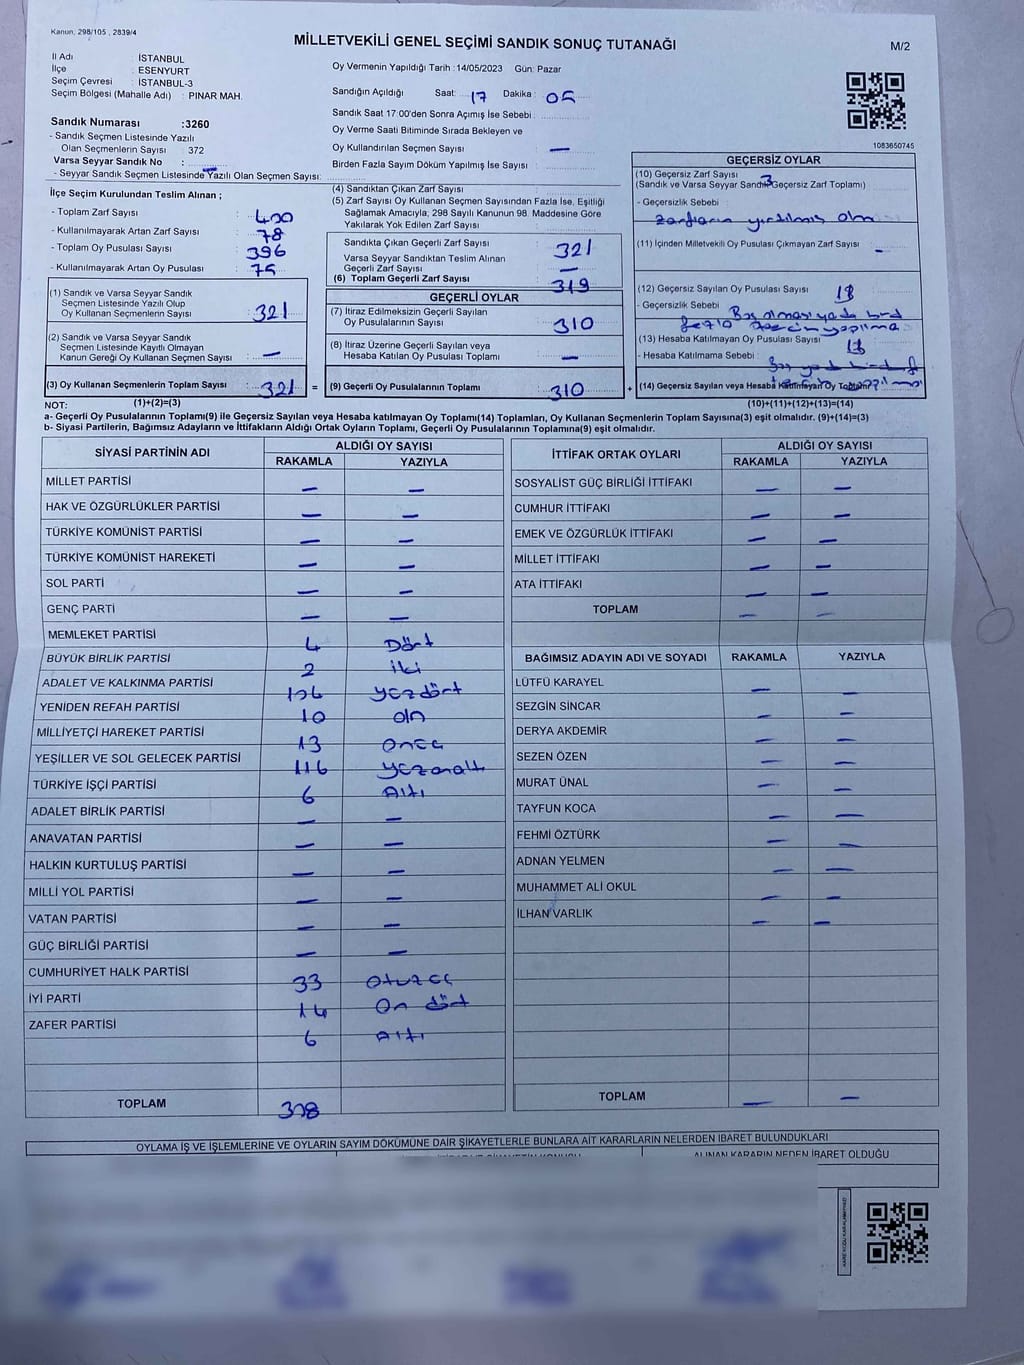 Kanun, 298/105 , 2839/4
MİLLETVEKİLİ GENEL SEÇİMİ SANDIK SONUÇ TUTANAĞI
M/2
İl Adı : İSTANBUL
İlçe : ESENYURT
Seçim Çevresi : İSTANBUL-3
Seçim Bölgesi (Mahalle Adı) : PINAR MAH.
Sandık Numarası :3260
- Sandık Seçmen Listesinde Yazılı
Olan Seçmenlerin Sayısı : 372
Varsa Seyyar Sandık No : —
- Seyyar Sandık Seçmen Listesinde Yazılı Olan Seçmen Sayısı:
Oy Vermenin Yapıldığı Tarih :14/05/2023 Gün: Pazar
Sandığın Açıldığı Saat: 17 Dakika : 05
Sandık Saat 17:00'den Sonra Açımış İse Sebebi :
Oy Verme Saati Bitiminde Sırada Bekleyen ve
Oy Kullandırılan Seçmen Sayısı : —
Birden Fazla Sayım Döküm Yapılmış İse Sayısı :
1083650745
İlçe Seçim Kurulundan Teslim Alınan ;
- Toplam Zarf Sayısı : 400
- Kullanılmayarak Artan Zarf Sayısı : 78
- Toplam Oy Pusulası Sayısı : 396
- Kullanılmayarak Artan Oy Pusulası : 75
(1) Sandık ve Varsa Seyyar Sandık
Seçmen Listesinde Yazılı Olup
Oy Kullanan Seçmenlerin Sayısı : 321
(2) Sandık ve Varsa Seyyar Sandık
Seçmen Listesinde Kayıtlı Olmayan
Kanun Gereği Oy Kullanan Seçmen Sayısı : —
(3) Oy Kullanan Seçmenlerin Toplam Sayısı : 321 =
(1)+(2)=(3)
(4) Sandıktan Çıkan Zarf Sayısı :
(5) Zarf Sayısı Oy Kullanan Seçmen Sayısından Fazla İse, Eşitliği
Sağlamak Amacıyla; 298 Sayılı Kanunun 98. Maddesine Göre
Yakılarak Yok Edilen Zarf Sayısı :
Sandıkta Çıkan Geçerli Zarf Sayısı : 321
Varsa Seyyar Sandıktan Teslim Alınan
Geçerli Zarf Sayısı : —
(6) Toplam Geçerli Zarf Sayısı : 319
GEÇERLİ OYLAR
(7) İtiraz Edilmeksizin Geçerli Sayılan
Oy Pusulalarının Sayısı : 310
(8) İtiraz Üzerine Geçerli Sayılan veya
Hesaba Katılan Oy Pusulası Toplamı : —
(9) Geçerli Oy Pusulalarının Toplamı : 310 +
GEÇERSİZ OYLAR
(10) Geçersiz Zarf Sayısı : 3
(Sandık ve Varsa Seyyar Sandık Geçersiz Zarf Toplamı)
- Geçersizlik Sebebi :
zarfların yırtılmış olm
(11) İçinden Milletvekili Oy Pusulası Çıkmayan Zarf Sayısı : -
(12) Geçersiz Sayılan Oy Pusulası Sayısı : 18
- Geçersizlik Sebebi : Boş olması ya da
(13) Hesaba Katılmayan Oy Pusulası Sayısı :
- Hesaba Katılmama Sebebi :
(14) Geçersiz Sayılan veya Hesaba Katılmayan Oy Toplamı
(10)+(11)+(12)+(13)=(14)
NOT:
a- Geçerli Oy Pusulalarının Toplamı(9) ile Geçersiz Sayılan veya Hesaba katılmayan Oy Toplamı(14) Toplamları, Oy Kullanan Seçmenlerin Toplam Sayısına(3) eşit olmalıdır. (9)+(14)=(3)
b- Siyasi Partilerin, Bağımsız Adayların ve İttifakların Aldığı Ortak Oyların Toplamı, Geçerli Oy Pusulalarının Toplamına(9) eşit olmalıdır.
SİYASİ PARTİNİN ADI ALDIĞI OY SAYISI
RAKAMLA YAZIYLA
MİLLET PARTİSİ — —
HAK VE ÖZGÜRLÜKLER PARTİSİ — —
TÜRKİYE KOMÜNİST PARTİSİ — —
TÜRKİYE KOMÜNİST HAREKETİ — —
SOL PARTİ — —
GENÇ PARTİ — —
MEMLEKET PARTİSİ 4 Dört
BÜYÜK BİRLİK PARTİSİ 2 iki
ADALET VE KALKINMA PARTİSİ 104 yüzdört
YENİDEN REFAH PARTİSİ 10 on
MİLLİYETÇİ HAREKET PARTİSİ 13 onüç
YEŞİLLER VE SOL GELECEK PARTİSİ 116 yüzonaltı
TÜRKİYE İŞÇİ PARTİSİ 6 Altı
ADALET BİRLİK PARTİSİ — —
ANAVATAN PARTİSİ — —
HALKIN KURTULUŞ PARTİSİ — —
MİLLİ YOL PARTİSİ — —
VATAN PARTİSİ — —
GÜÇ BİRLİĞİ PARTİSİ — —
CUMHURİYET HALK PARTİSİ 33 otuzüç
İYİ PARTİ 14 On dört
ZAFER PARTİSİ 6 Altı
TOPLAM 308
İTTİFAK ORTAK OYLARI ALDIĞI OY SAYISI
RAKAMLA YAZIYLA
SOSYALİST GÜÇ BİRLİĞİ İTTİFAKI — —
CUMHUR İTTİFAKI — —
EMEK VE ÖZGÜRLÜK İTTİFAKI — —
MİLLET İTTİFAKI — —
ATA İTTİFAKI — —
TOPLAM — —
BAĞIMSIZ ADAYIN ADI VE SOYADI RAKAMLA YAZIYLA
LÜTFÜ KARAYEL — —
SEZGİN SİNCAR — —
DERYA AKDEMİR — —
SEZEN ÖZEN — —
MURAT ÜNAL — —
TAYFUN KOCA — —
FEHMİ ÖZTÜRK — —
ADNAN YELMEN — —
MUHAMMET ALİ OKUL — —
İLHAN VARLIK — —
TOPLAM — —
OYLAMA İŞ VE İŞLEMLERİNE VE OYLARIN SAYIM DÖKÜMÜNE DAİR ŞİKAYETLERLE BUNLARA AİT KARARLARIN NELERDEN İBARET BULUNDUKLARI
ALINAN KARARIN NEDEN İBARET OLDUĞU